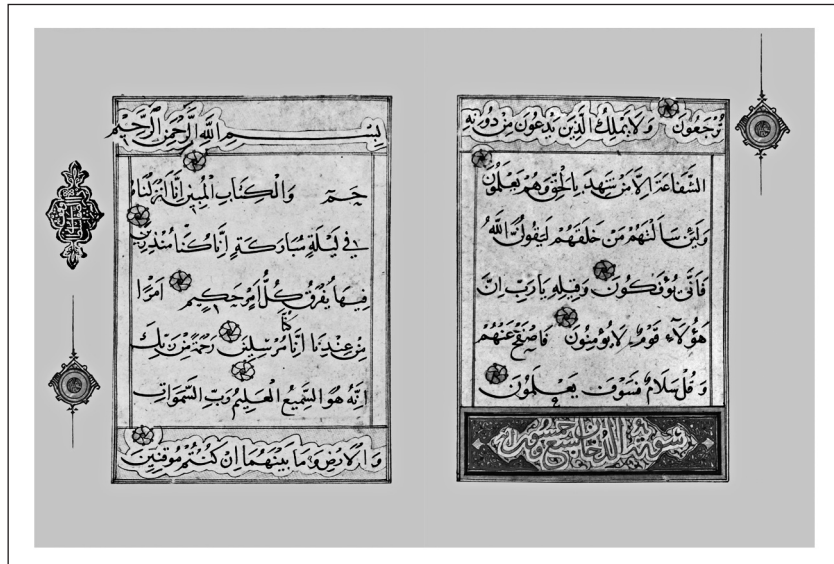 تُرْجَعُونَ وَلَا يَمْلِكُ الَّذِينَ يَدْعُونَ مِنْ دُونِهِ
الشَّفَاعَةَ اِلَّا مَنْ شَهِدَ بِالْحَقِّ وَهُمْ يَعْلَمُونَ
وَلَئِنْ سَاَلْتَهُمْ مَنْ خَلَقَهُمْ لَيَقُولُنَّ اللَّهُ
فَاَنَّى يُؤْفَكُونَ وَقِيلِهِ يَا رَبِّ اِنَّ
هَؤُلَاءِ قَوْمٌ لَا يُؤْمِنُونَ فَاصْفَحْ عَنْهُمْ
وَقُلْ سَلَامٌ فَسَوْفَ يَعْلَمُونَ
سورة الدخان
بِسْمِ اللَّهِ الرَّحْمَنِ الرَّحِيمِ
حم وَالْكِتَابِ الْمُبِينِ اِنَّا اَنْزَلْنَاهُ
فِي لَيْلَةٍ مُبَارَكَةٍ اِنَّا كُنَّا مُنْذِرِينَ
فِيهَا يُفْرَقُ كُلُّ اَمْرٍ حَكِيمٍ اَمْرًا
مِنْ عِنْدِنَا اِنَّا كُنَّا مُرْسِلِينَ رَحْمَةً مِنْ رَبِّكَ
اِنَّهُ هُوَ السَّمِيعُ الْعَلِيمُ رَبِّ السَّمَوَاتِ
وَالْاَرْضِ وَمَا بَيْنَهُمَا اِنْ كُنْتُمْ مُوقِنِينَ